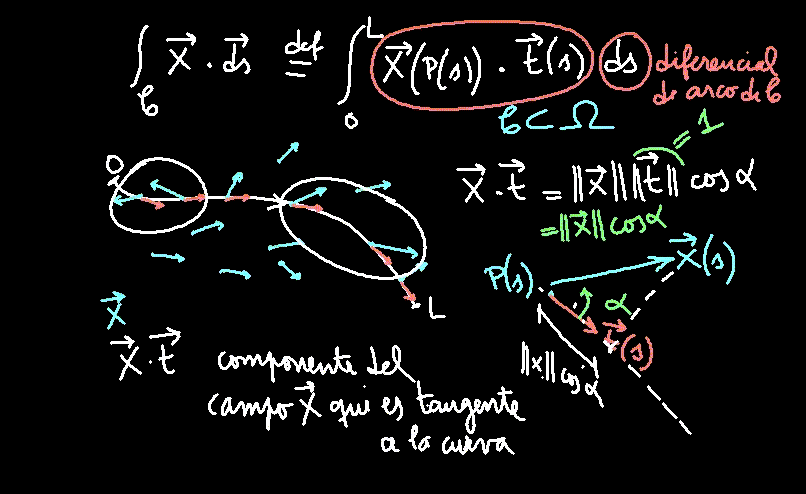 ∫_𝒞 X⃗ · ds⃗ =def= ∫_0^L X⃗(P(s)) · t⃗(s) ds diferencial
de arco de 𝒞
𝒞 ⊂ Ω
= 1
X⃗ · t⃗ = ||X⃗|| ||t⃗|| cos α
= ||X⃗|| cos α
0
L
P(s) X⃗(s)
α
t⃗(s)
||x|| cos α
X⃗
X⃗ · t⃗ componente del
campo X⃗ que es tangente
a la curva